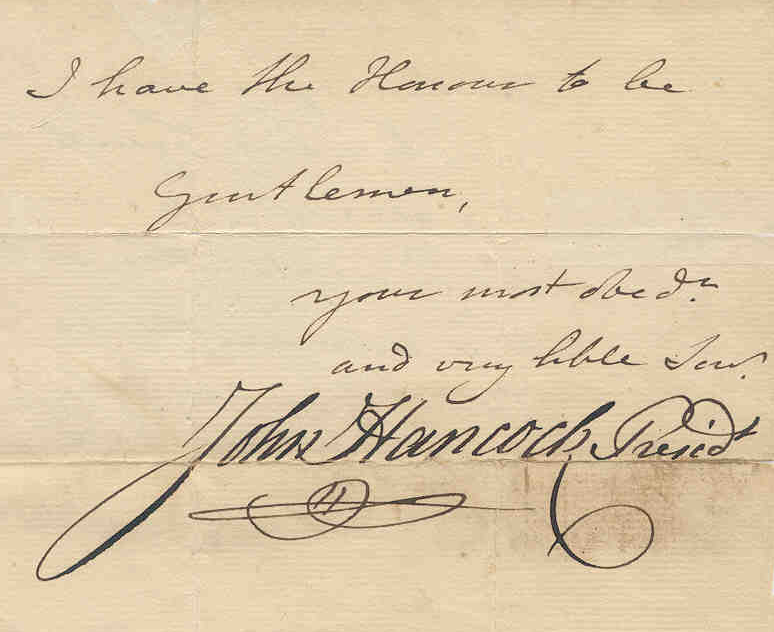 I have the Honour to be
Gentlemen,
your most obedt.
and very hble Serv.
John Hancock Presidt